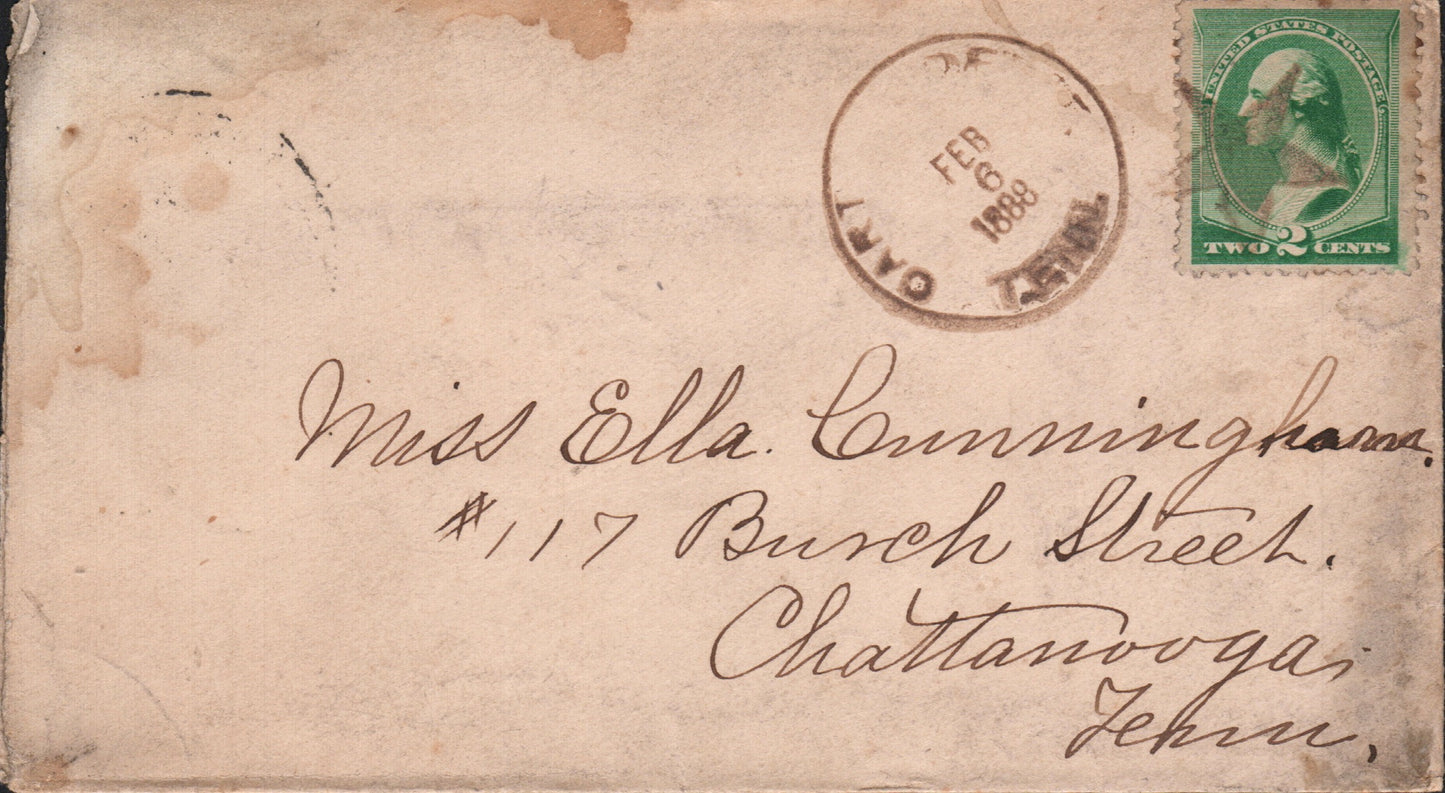 UNITED STATES POSTAGE
TWO 2 CENTS
FEB
6
1888
TENN.
Miss Ella. Cunningham.
#117 Burch Street.
Chattanooga,
Tenn,